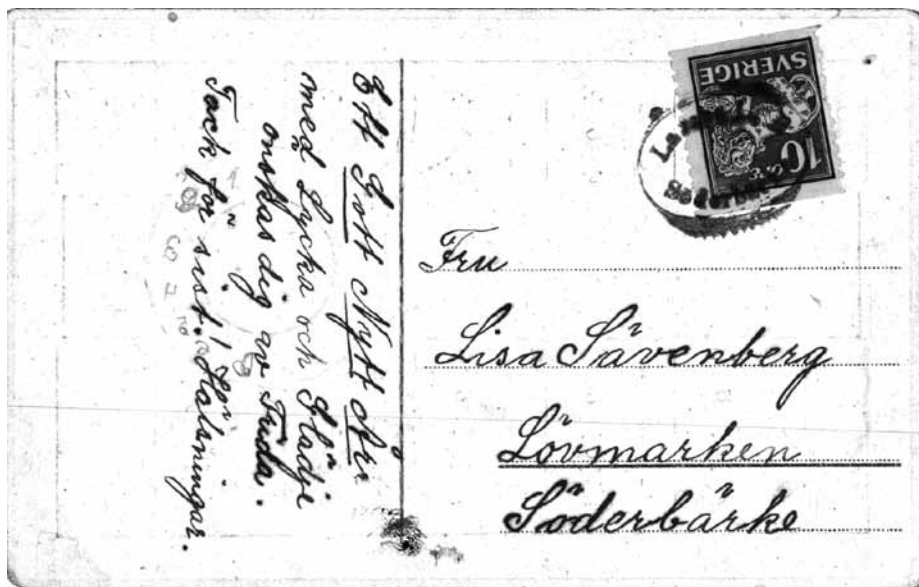 Ett Gott Nytt År
med Lycka och Glädje
önskas dig av Frida.
Tack för sist! Hälsningar.
SVERIGE
10 ÖRE
Fru
Lisa Sävenberg
Lövmarken
Söderbärke